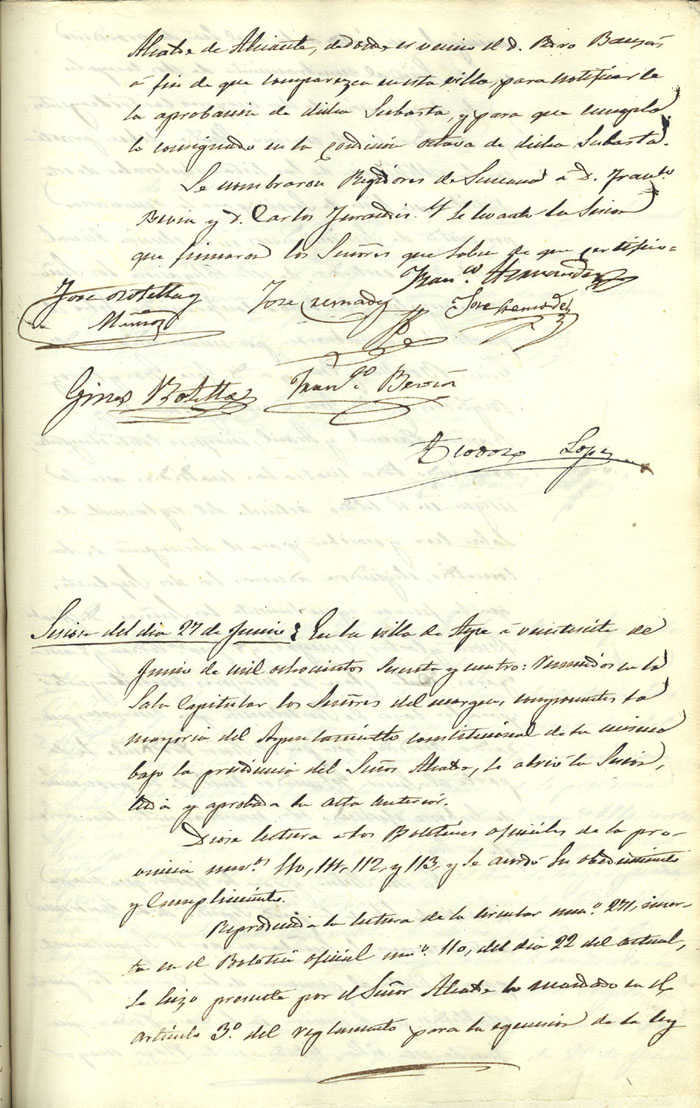 Alcalde de Alicante, dedonde es vecino el D.
á fin de que comparezca en esta villa para notificarle
la aprobacion de dicha Subasta, y para que cumpla
lo consignado en la condicion octava de dicha Subasta.
Se nombraron Regidores de Semana á D. Fran.co
Bevia y D. Carlos Y se levantó la Sesion
que firmaron los Señores que saben de que certifico=
Jose Botella y
Muñoz
Jose Fran.co Hernandez
Jose Hernandez
Gines Botella Fran.co Bevia
Teodoro Lopez
Sesion del dia 27 de Junio: En la villa de á veintisiete de
Junio de mil ochocientos Sesenta y cuatro: reunidos en la
Sala Capitular los Señores del margen, componentes la
mayoria del Ayuntamiento constitucional de la misma
bajo la presidencia del Señor Alcalde, se abrió la Sesion,
leida y aprobada la acta anterior.
Diose lectura á los Boletines oficiales de la pro-
vincia num.os 110, 111, 112, y 113, y se acordó su obedecimiento
y Cumplimiento.
Reproducida la lectura de la circular num.o 271, inser-
ta en el Boletin oficial num.o 110, del dia 22 del actual,
se hizo presente por el Señor Alcalde lo mandado en el
articulo 3.o del reglamento para la ejecucion de la ley